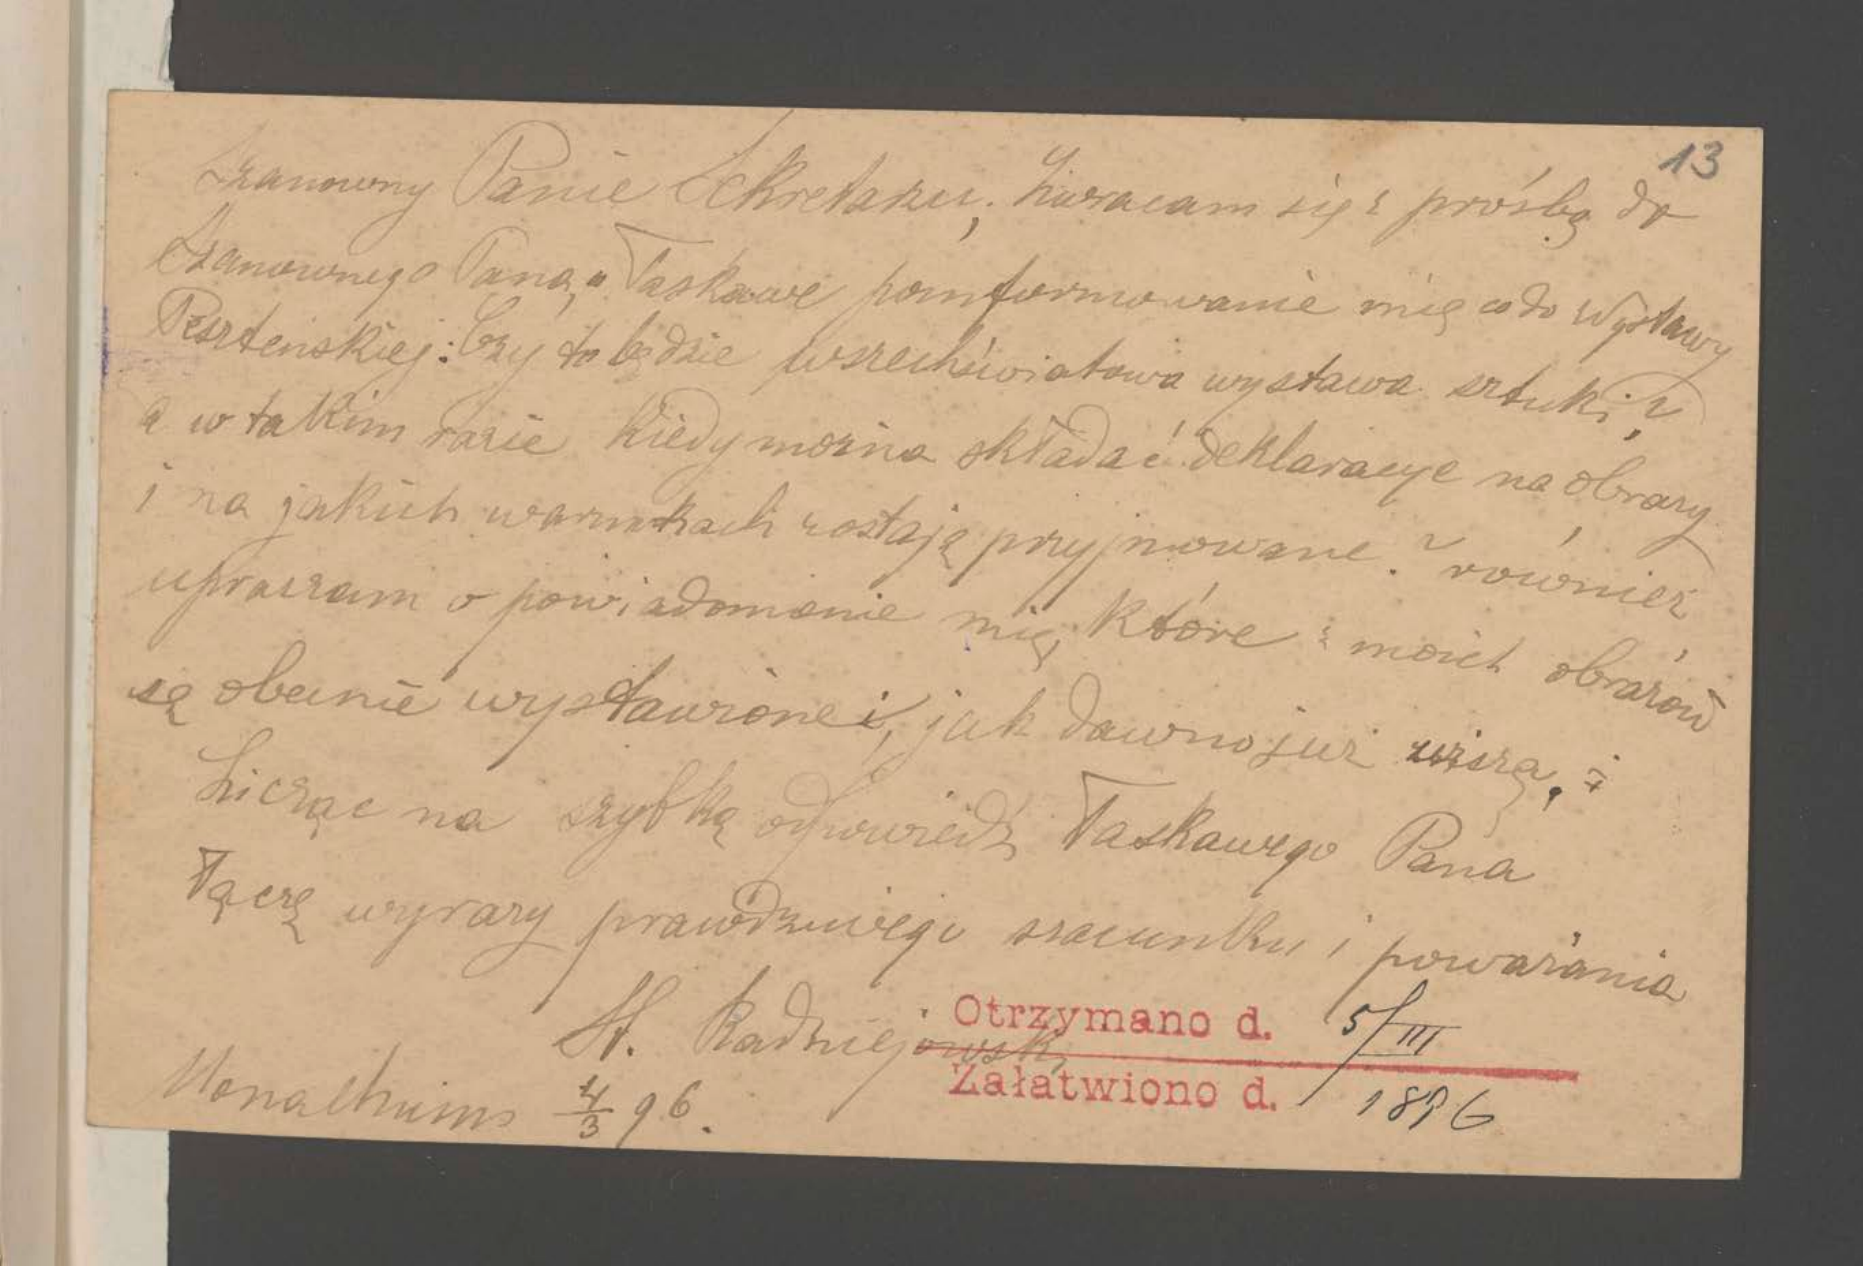 13
Szanowny Panie Sekretarzu, Zwracam się z prośbą do
Szanownego Pana, o Łaskawe poinformowanie mię co do Wystawy
Peszteńskiej: Czy to będzie wszechświatowa wystawa sztuki,?
a w takim razie Kiedy można składać deklaracye na obrazy
i na jakich warunkach zostają przyjmowane? również
upraszam o powiadomienie mię, Które z moich obrazów
są obecnie wystawione i, jak dawno już wiszą,
Licząc na szybką odpowiedź Łaskawego Pana
Łączę wyrazy prawdziwego szacunku i poważania
St. Radziejowski
Otrzymano d. 5/III
Załatwiono d. 1896
Monachium 4/3 96.